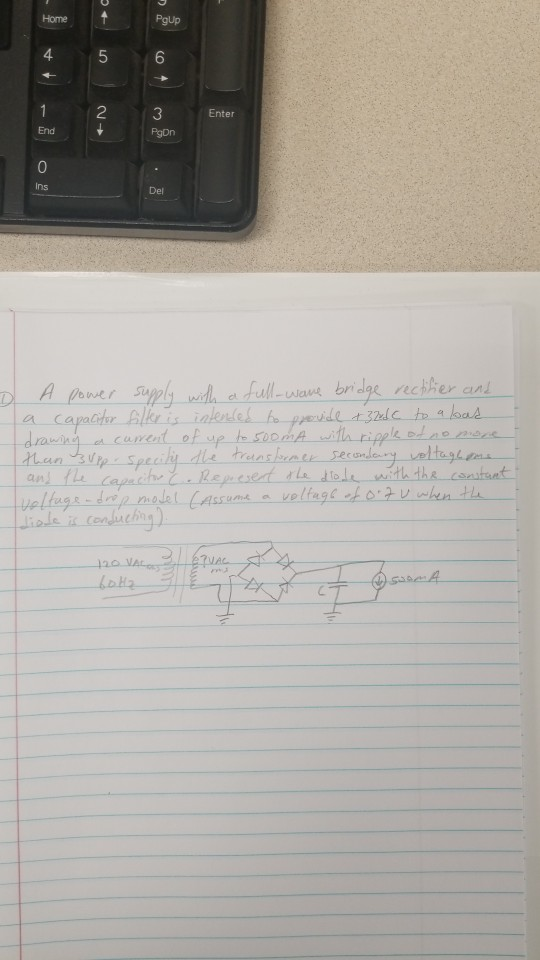 7 8 9
Home ↑ PgUp
4 5 6
← →
1 2 3 Enter
End ↓ PgDn
0 .
Ins Del
1) A power supply with a full-wave bridge rectifier and
a capacitor filter is intended to provide +32vdc to a load
drawing a current of up to 500mA with ripple of no more
than 3Vpp. Specify the transformer secondary voltage rms
and the capacitor C. Represent the diode with the constant
voltage-drop model (Assume a voltage of 0.7V when the
diode is conducting)
120 VAC rms ? VAC
60Hz rms C 500mA